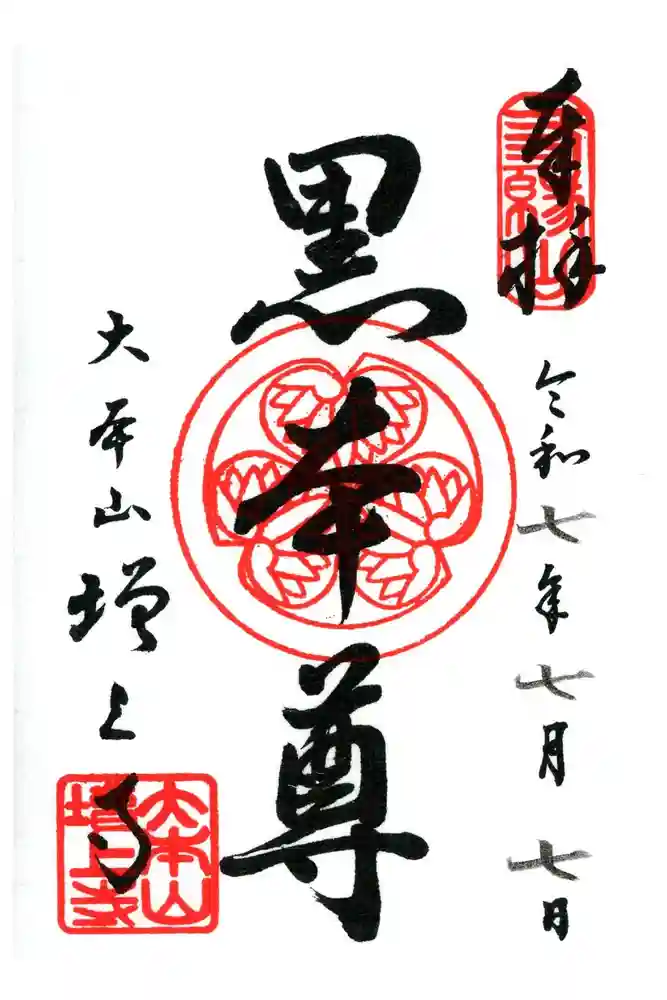 奉拝
三縁山
令和七年七月七日
黒本尊
大本山増上寺
大本山
増上寺